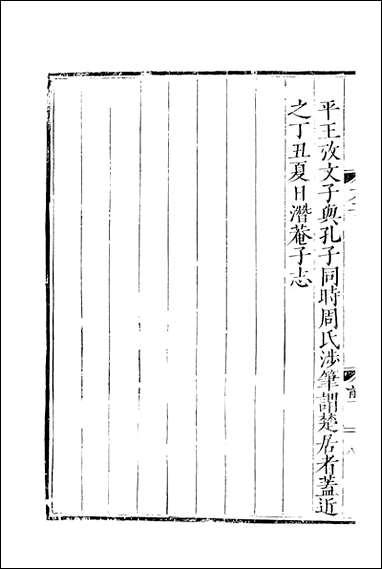 平王攷文子與孔子同時周氏涉筆謂楚居者蓋近
之丁丑夏日潛菴子志